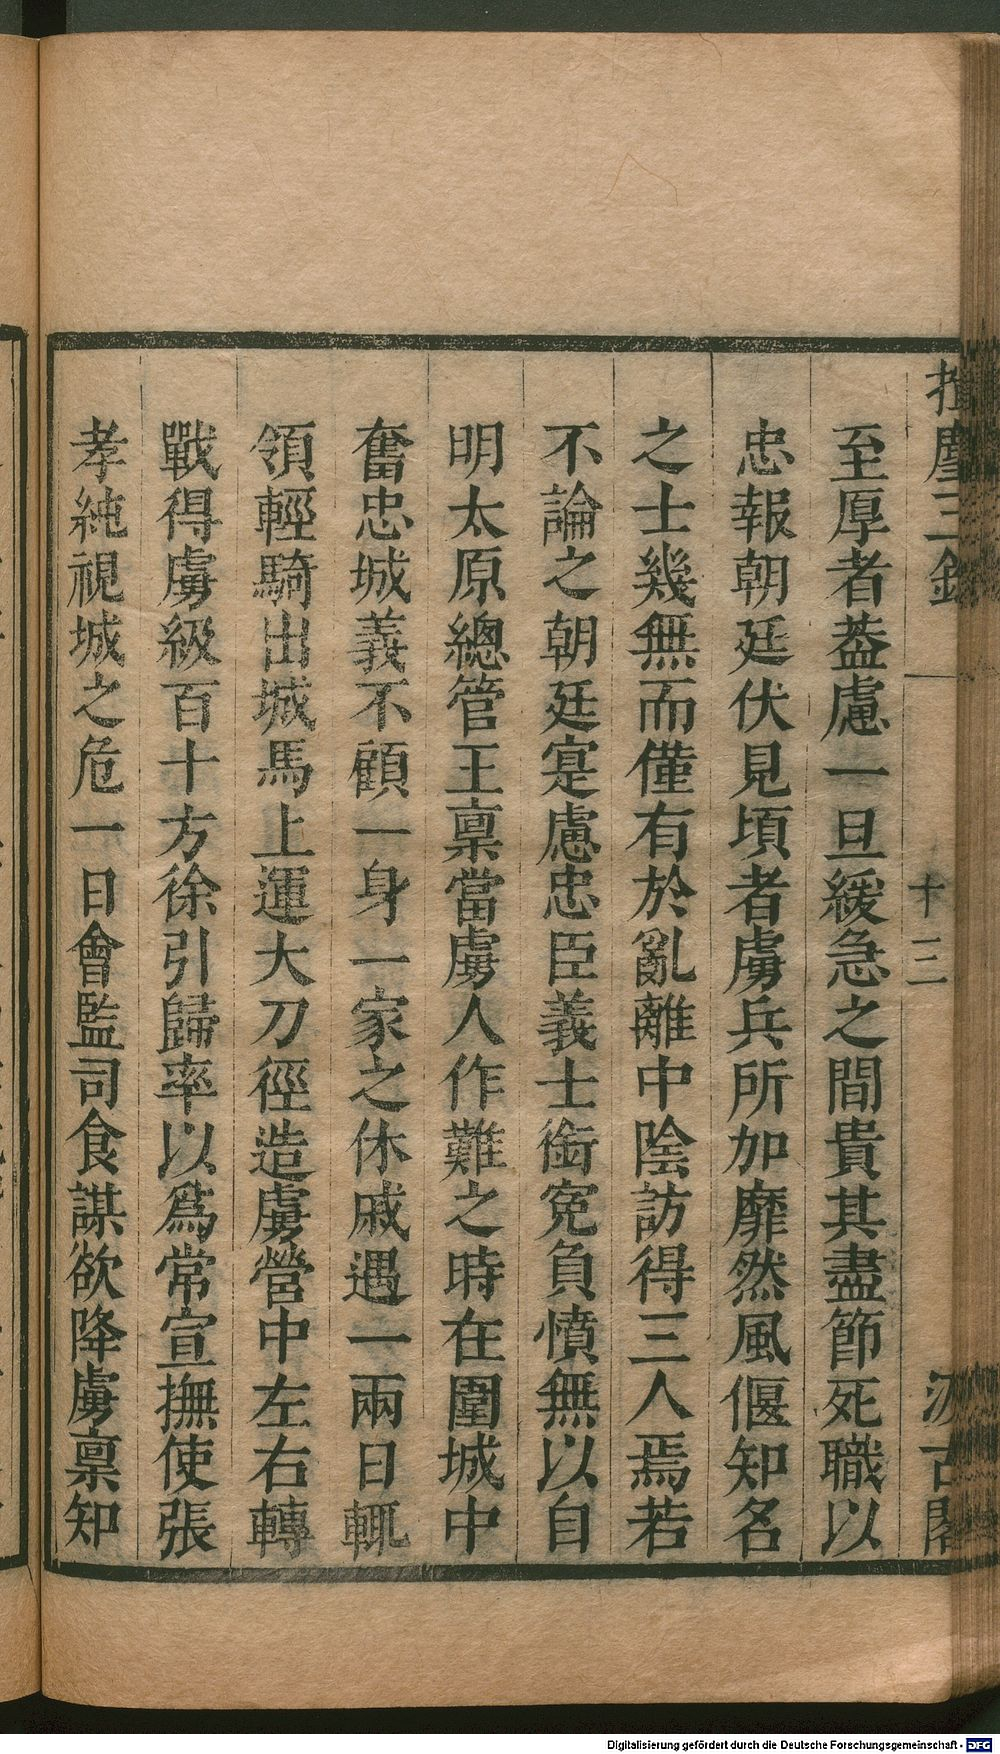 揮麈三錄
十三
汲古閣
至厚者葢慮一旦緩急之間貴其盡節死職以
忠報朝廷伏見頃者虜兵所加靡然風偃知名
之士幾無而僅有於亂離中陰訪得三人焉若
不論之朝廷寔慮忠臣義士銜冤負憤無以自
明太原總管王禀當虜人作難之時在圍城中
奮忠城義不顧一身一家之休戚遇一兩日輒
領輕騎出城馬上運大刀徑造虜營中左右轉
戰得虜級百十方徐引歸率以爲常宣撫使張
孝純視城之危一日會監司食謀欲降虜禀知
Digitalisierung gefördert durch die Deutsche Forschungsgemeinschaft - DFG